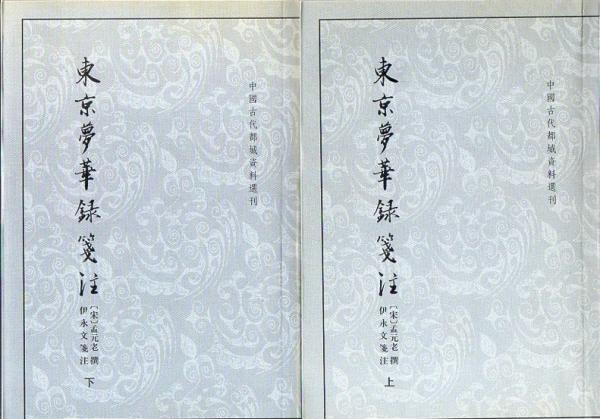 中國古代都城資料選刊
東京夢華録箋注
〔宋〕孟元老 撰
伊永文 箋注
上
中國古代都城資料選刊
東京夢華録箋注
〔宋〕孟元老 撰
伊永文 箋注
下